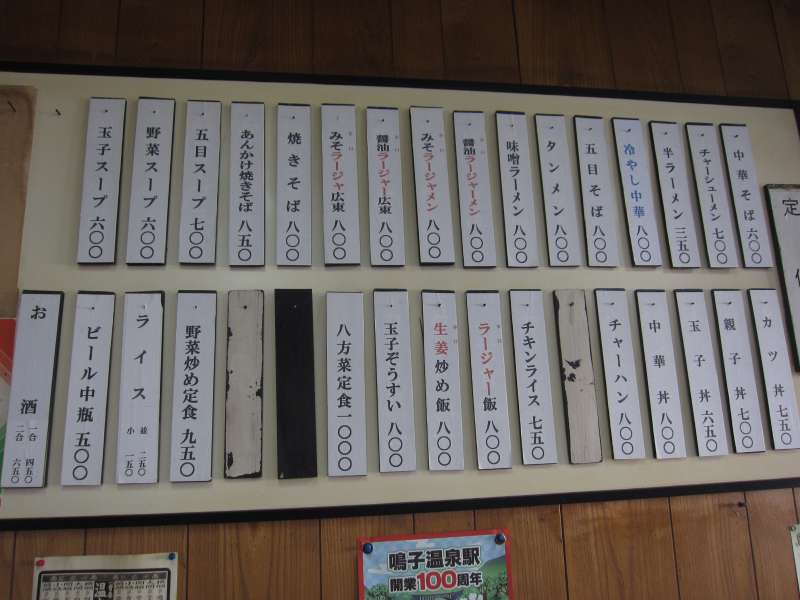 一 中華そば 六〇〇
一 チャーシューメン 七〇〇
一 半ラーメン 三五〇
一 冷やし中華 八〇〇
一 五目そば 八〇〇
一 タンメン 八〇〇
一 味噌ラーメン 八〇〇
一 醤油ラージャーメン 八〇〇
一 みそラージャメン 八〇〇
一 醤油ラージャ広東 八〇〇
一 みそラージャ広東 八〇〇
一 焼きそば 八〇〇
一 あんかけ焼きそば 八五〇
一 五目スープ 七〇〇
一 野菜スープ 六〇〇
一 玉子スープ 六〇〇
一 カツ丼 七五〇
一 親子丼 七〇〇
一 玉子丼 六五〇
一 中華丼 八〇〇
一 チャーハン 八〇〇
一 チキンライス 七五〇
一 ラージャー飯 八〇〇
一 生姜炒め飯 八〇〇
一 玉子ぞうすい 八〇〇
一 八方菜定食 一〇〇〇
一 野菜炒め定食 九五〇
一 ライス 並 二五〇
小 一五〇
一 ビール中瓶 五〇〇
お酒 一合 四五〇
二合 六五〇
定
鳴子温泉駅
開業100周年